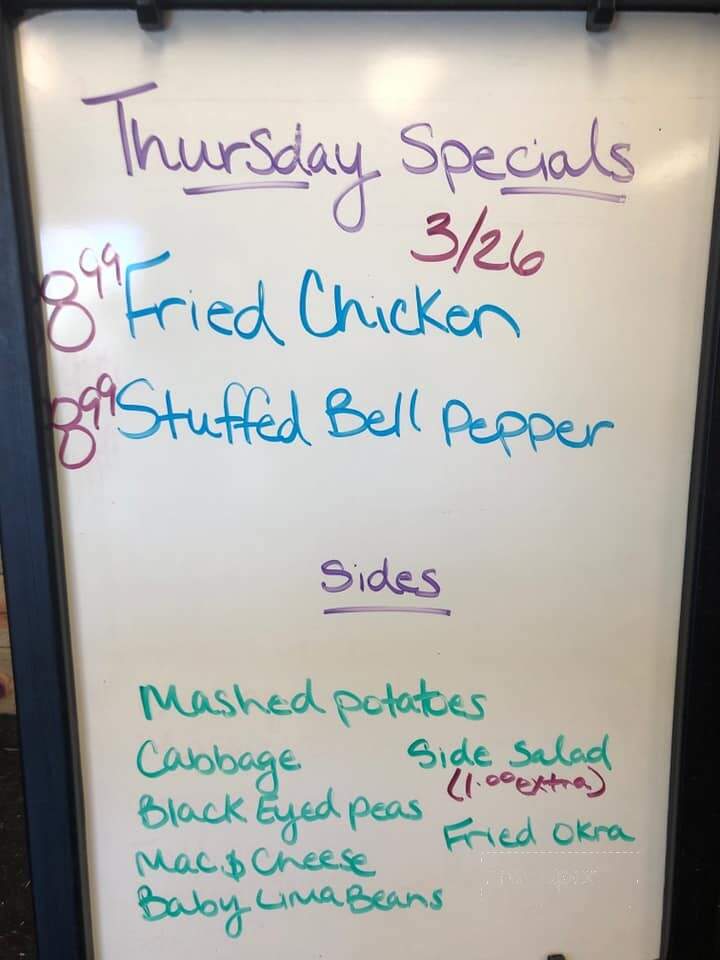 Thursday Specials
3/26
8.99 Fried Chicken
8.99 Stuffed Bell Pepper
Sides
Mashed potatoes
Cabbage
Side Salad
(1.00 extra)
Black Eyed peas
Fried Okra
Mac $ Cheese
Baby Lima Beans